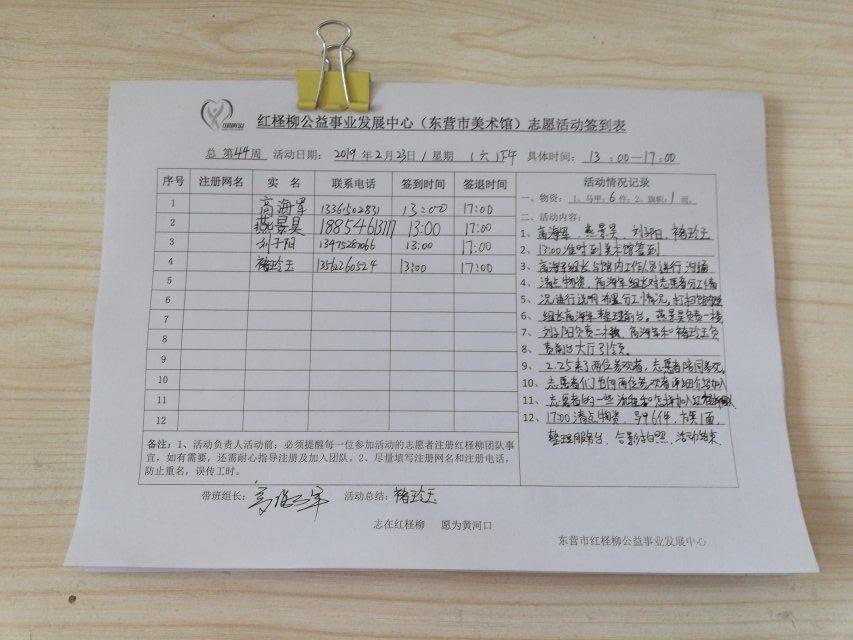 红柽柳公益事业发展中心（东营市美术馆）志愿活动签到表
总 第44周 活动日期： 2019 年 2 月 23日 / 星期 （六）下午 具体时间： 13 ：00—17：00
序号 注册网名 实 名 联系电话 签到时间 签退时间
1 高海军 13361502831 13:00 17:00
2 燕景昊 18854613117 13:00 17:00
3 刘子阳 13475287066 13:00 17:00
4 褚玲玉 13562260524 13:00 17:00
5
6
7
8
9
10
11
12
活动情况记录
一、物资：1、马甲：6 件；2、旗帜：1 面。
二、活动内容：
1、高海军、燕景昊、刘子阳、褚玲玉
2、13:00准时到美术馆签到
3、高海军组长与馆内工作人员进行沟通
4、清点物资，高海军组长对志愿者分工情
5、况进行说明
6、组长高海军整理前台。燕景昊负责一楼
7、刘子阳负责二楼，高海军和褚玲玉负
8、责前台大厅引领。
9、2.25来了两位参观者，志愿者陪同参观。
10、志愿者们也向两位参观者详细介绍加入
11、志愿者的一些
12、17:00清点物资，马甲6件，旗1面，
整理服务台，合影拍照，活动结束
备注：1、活动负责人活动前；必须提醒每一位参加活动的志愿者注册红柽柳团队事
宜，如有需要，还需耐心指导注册及加入团队。2、尽量填写注册网名和注册电话，
防止重名，误传工时。
带班组长：高海军 活动总结：褚玲玉
志在红柽柳 愿为黄河口
东营市红柽柳公益事业发展中心